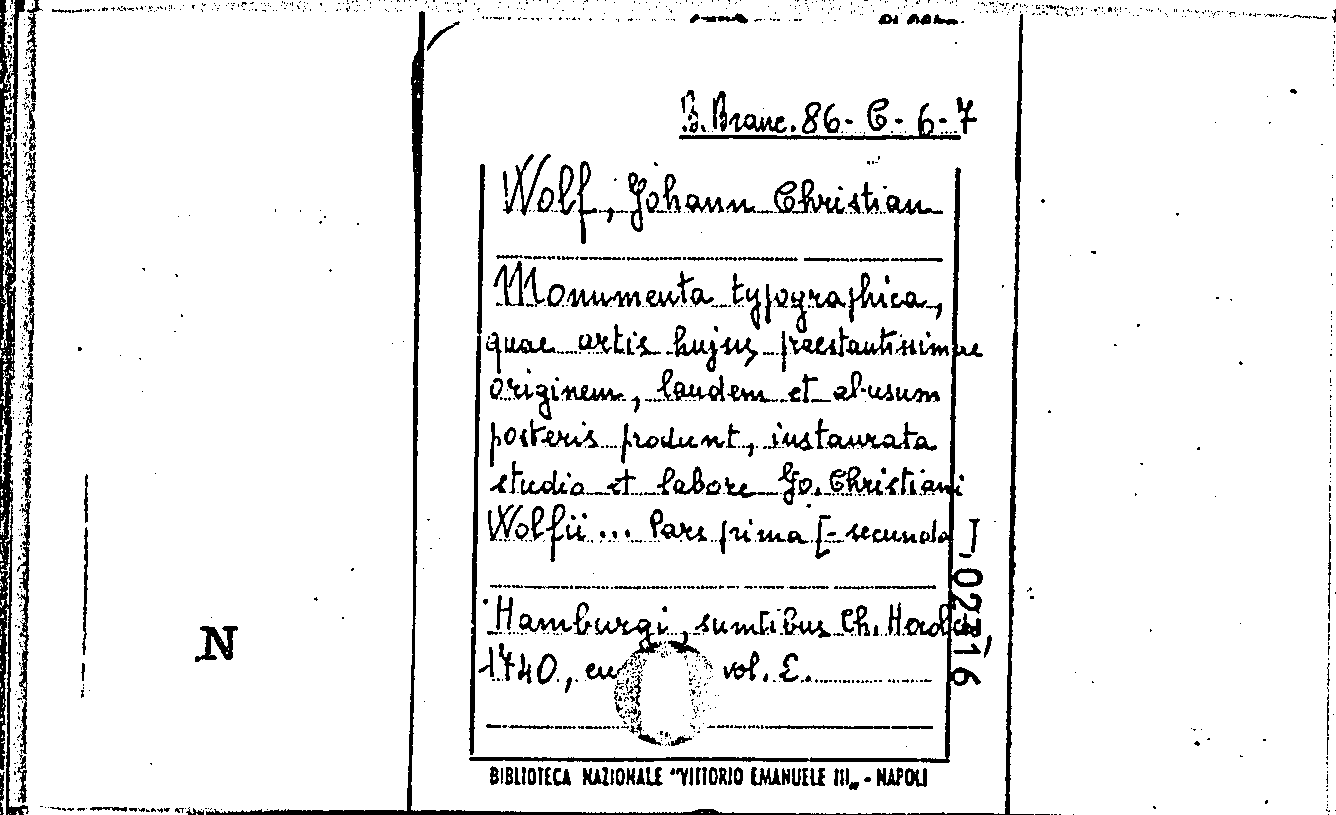 B. Branc. 86- C- 6-7
Wolf, Johann Christian
Monumenta typographica,
quae artis hujus praestantissimae
originem, laudem et abusum
posteris produnt, instaurata
studio et labore Jo. Christiani
Wolfii ... Pars prima [- secunda]
Hamburgi, sumtibus Ch. Heroldi
1740, vol. 2.
BIBLIOTECA NAZIONALE "VITTORIO EMANUELE III„ - NAPOLI
N